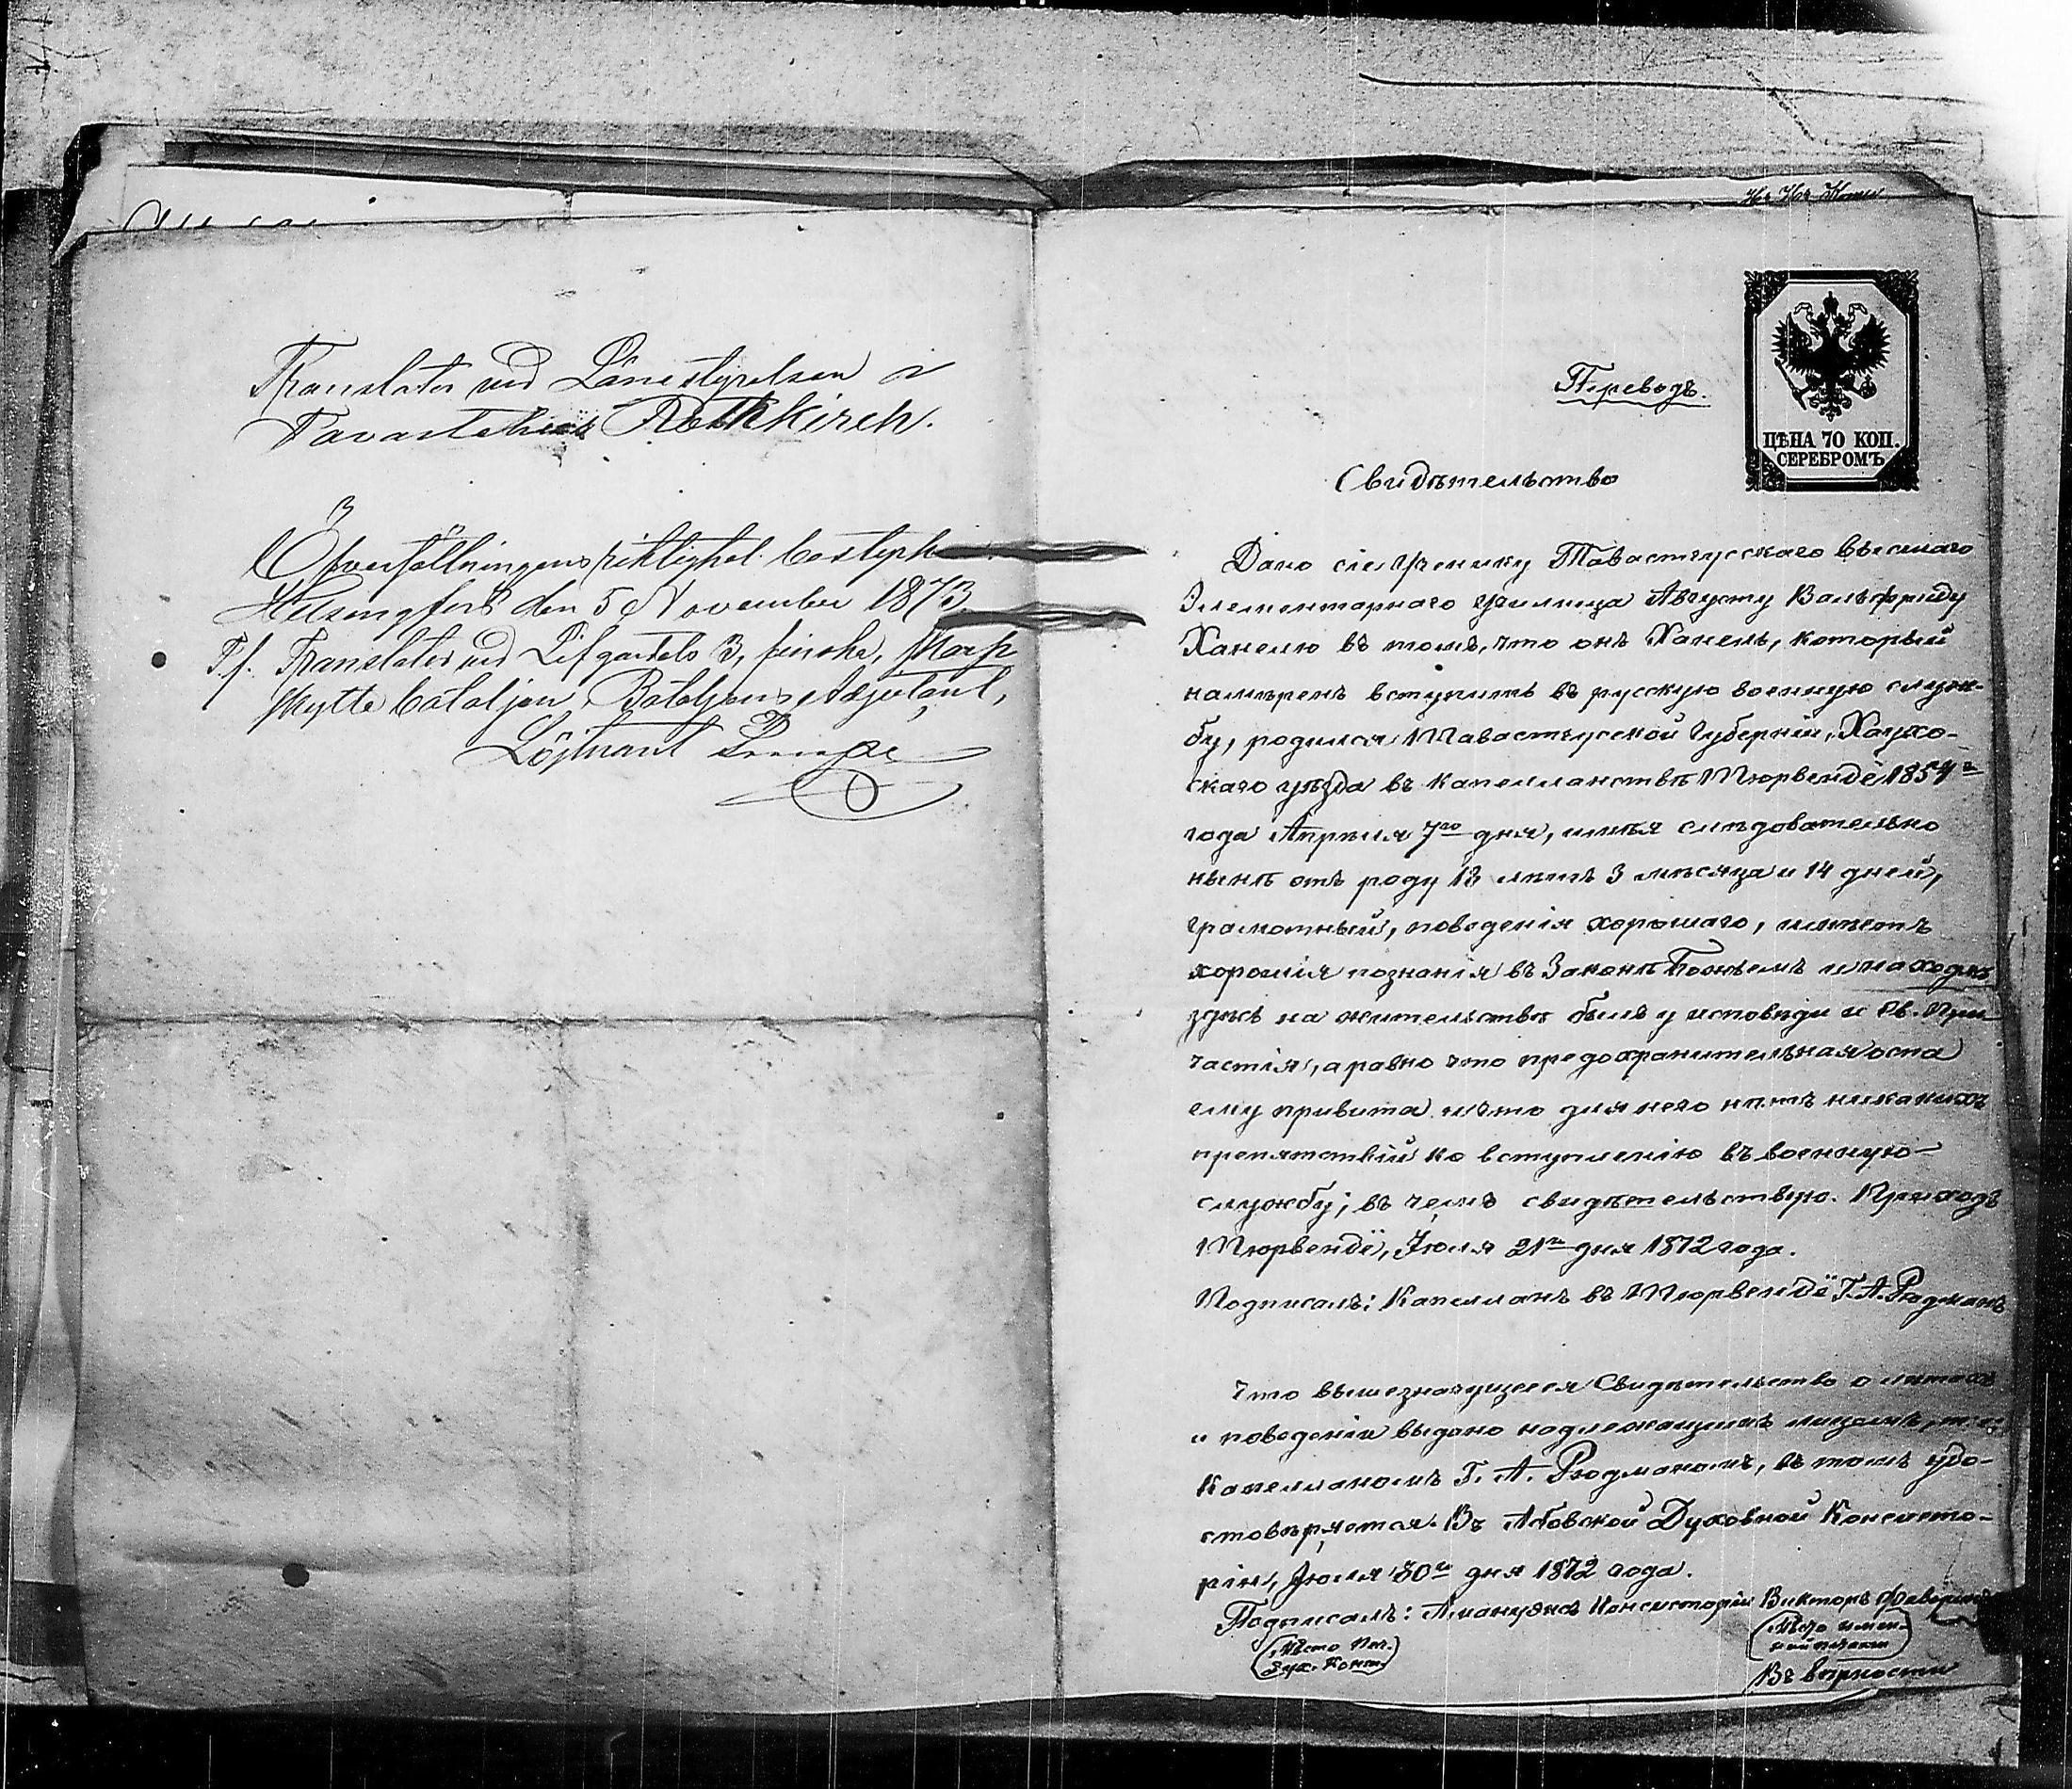 Translator vid Länestyrelsen i
Tavastehus Rothkirch.
Öfversättningens riktighet bestyrk
Helsingfors den 5 November 1873
T.f. Translator vid Lifgardets 3, finska, skarp
skytte bataljon, Bataljons Adjutant,
Löjtnant
Переводъ.
ЦѢНА 70 КОП.
СЕРЕБРОМЪ
Свидѣтельство
Дано сіе Ученику Тавастгусскаго высшаго
Элементарнаго училища Августу Вальфриду
Ханелю въ томъ, что онъ Ханель, который
намѣренъ вступить въ русскую военную служ-
бу, родился Тавастгусской Губерніи, Хаухо-
скаго уѣзда въ капелланствѣ Тюрвендё 1854го
года Апрѣля 7го дня, имѣя слѣдовательно
нынѣ отъ роду 18 лѣтъ 3 мѣсяца и 14 дней,
грамотный, поведенія хорошаго, имѣетъ
хорошія познанія въ Законѣ Божьемъ и находясь
здѣсь на жительствѣ былъ у исповѣди и Св. При-
частія, а равно что предохранительная оспа
ему привита и что для него нѣтъ никакихъ
препятствій ко вступленію въ военную
службу; въ чемъ свидѣтельствую. Приходъ
Тюрвендё, Іюля 21го дня 1872 года.
Подписалъ: Капелланъ въ Тюрвендё Г. А. Рюдманъ
Что вышезначущееся Свидѣтельство о лѣтахъ
и поведеніи выдано надлежащимъ лицомъ,
Капелланомъ Г. А. Рюдманомъ, въ томъ удо-
стовѣряется. Въ Абовской Духовной Консисто-
ріи, Іюля 30го дня 1872 года.
Подписалъ: Амануэнсъ Консисторіи Викторъ
(Мѣсто Печ.
Дух. Конс.)
(Мѣсто имен-
ной печати)
Въ вѣрности